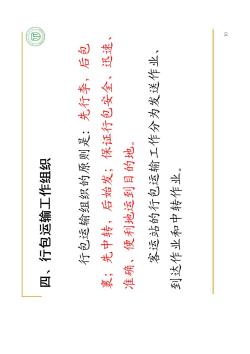 四、行包运输工作组织
行包运输组织的原则是：先行李，后包
裹；先中转，后始发；保证行包安全、迅速、
准确、便利地运到目的地。
客运站的行包运输工作分为发送作业、
到达作业和中转作业。